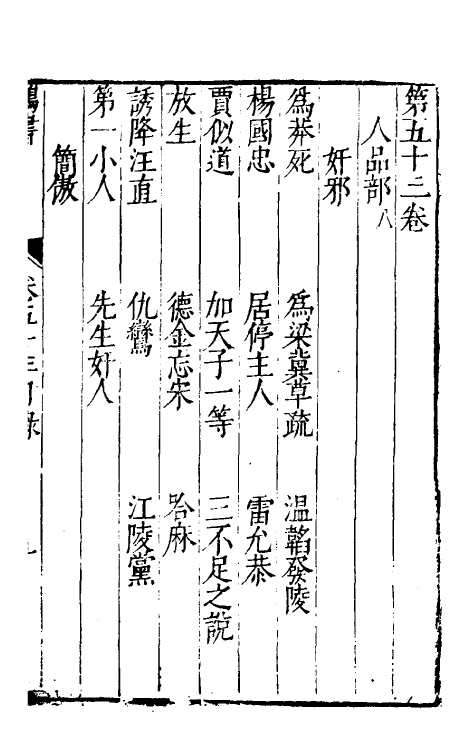 第五十三卷
人品部八
奸邪
為莽死　為梁冀草疏　温韜發陵
楊國忠　居停主人　雷允恭
賈似道　加天子一等　三不足之說
放生　德金忘宋　哈麻
誘降汪直　仇鸞　江陵黨
第一小人　先生奸人
簡傲